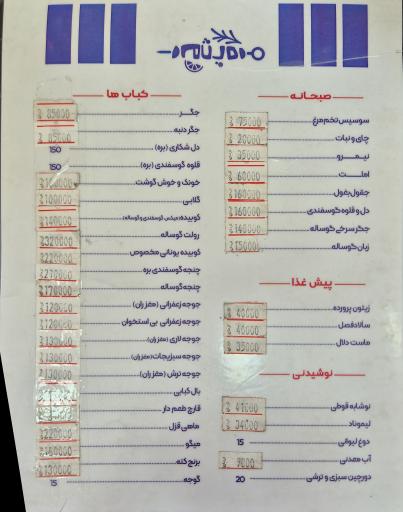 صبحانه
سوسیس تخم مرغ 75000
چای و نبات 20000
نیمرو 35000
املت 60000
جغول بغول 160000
دل و قلوه گوسفندی 160000
جگر سرخی گوساله 140000
زبان گوساله 150000
پیش غذا
زیتون پرورده 40000
سالاد فصل 40000
ماست دلال 35000
نوشیدنی
نوشابه قوطی 41000
لیموناد 34000
دوغ لیوانی 15
آب معدنی 9000
دورچین سبزی و ترشی 20
کباب ها
جگر 85000
جگر دنبه 85000
دل شکاری (بره) 150
قلوه گوسفندی (بره) 150
خونک و خوش گوشت
گلابی
کوبیده (میکس گوسفندی و گوساله) 140000
رولت گوساله 320000
کوبیده یونانی مخصوص 220000
چنجه گوسفندی بره 270000
چنجه گوساله 170000
جوجه زعفرانی (مغز ران) 120000
جوجه زعفرانی بی استخوان 120000
جوجه لاری (مغز ران) 130000
جوجه سبزیجات (مغز ران) 130000
جوجه ترش (مغز ران) 130000
بال کبابی
قارچ طعم دار
ماهی قزل 220000
میگو
برنج کته 130000
گوجه 15